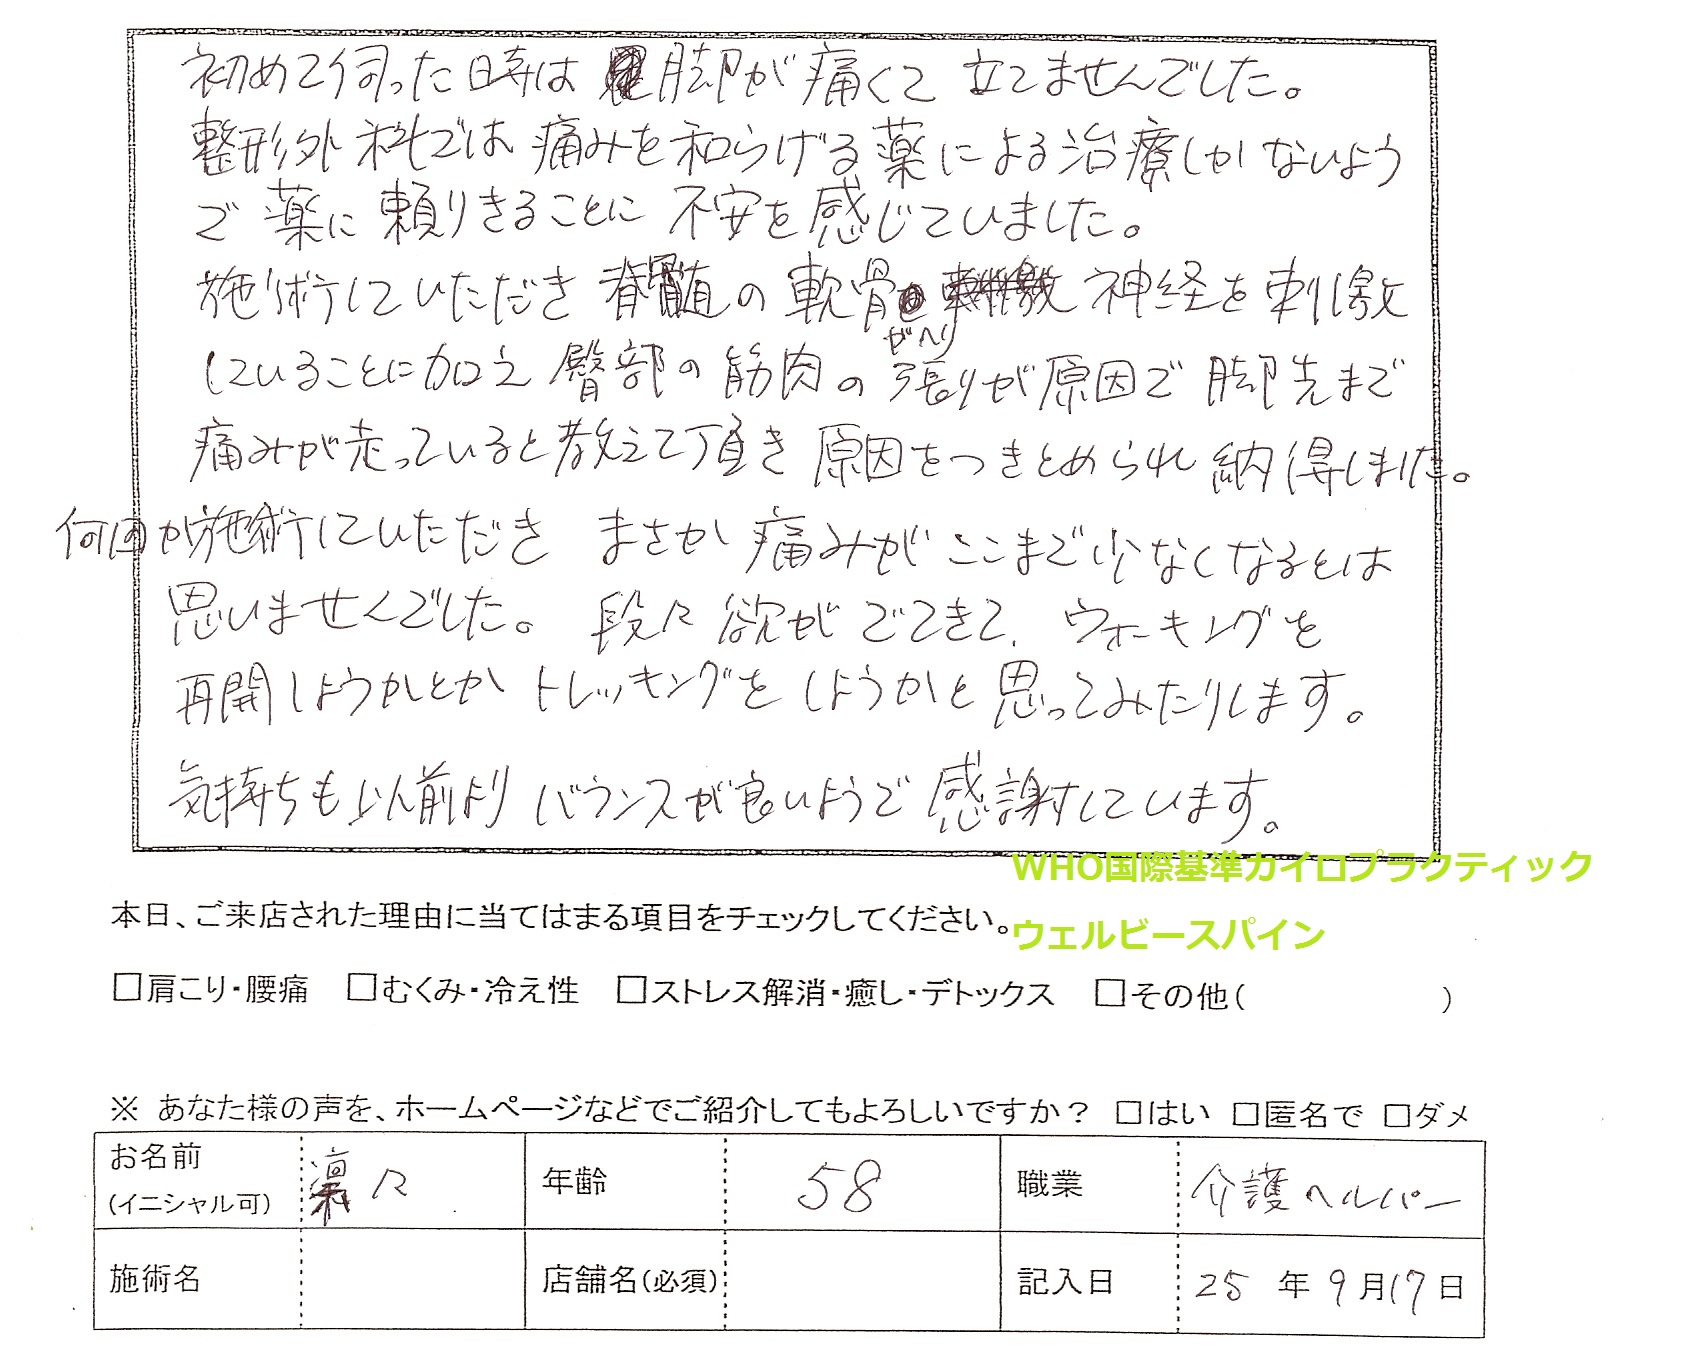 初めて伺った時は 脚が痛くて 立てませんでした。
整形外科では 痛みを和らげる薬による治療しかないよう
で 薬に頼りきることに 不安を感じていました。
施術していただき 脊髄の軟骨がへり 神経を刺激
していることに加え 臀部の筋肉の張りが原因で 脚先まで
痛みが走っていると教えて頂き 原因をつきとめられ 納得しました。
何回か施術していただき まさか 痛みがここまで少なくなるとは
思いませんでした。 段々 欲がでてきて、ウォーキングを
再開しようかとか トレッキングをしようかと思ってみたりします。
気持ちも以前より バランスが良いようで 感謝しています。
WHO国際基準カイロプラクティック
本日、ご来店された理由に当てはまる項目をチェックしてください。
ウェルビースパイン
□肩こり・腰痛 □むくみ・冷え性 □ストレス解消・癒し・デトックス □その他( )
※ あなた様の声を、ホームページなどでご紹介してもよろしいですか? □はい □匿名で □ダメ
お名前 (イニシャル可) 凛々 年齢 58 職業 介護ヘルパー
施術名 店舗名(必須) 記入日 25 年 9 月 17 日